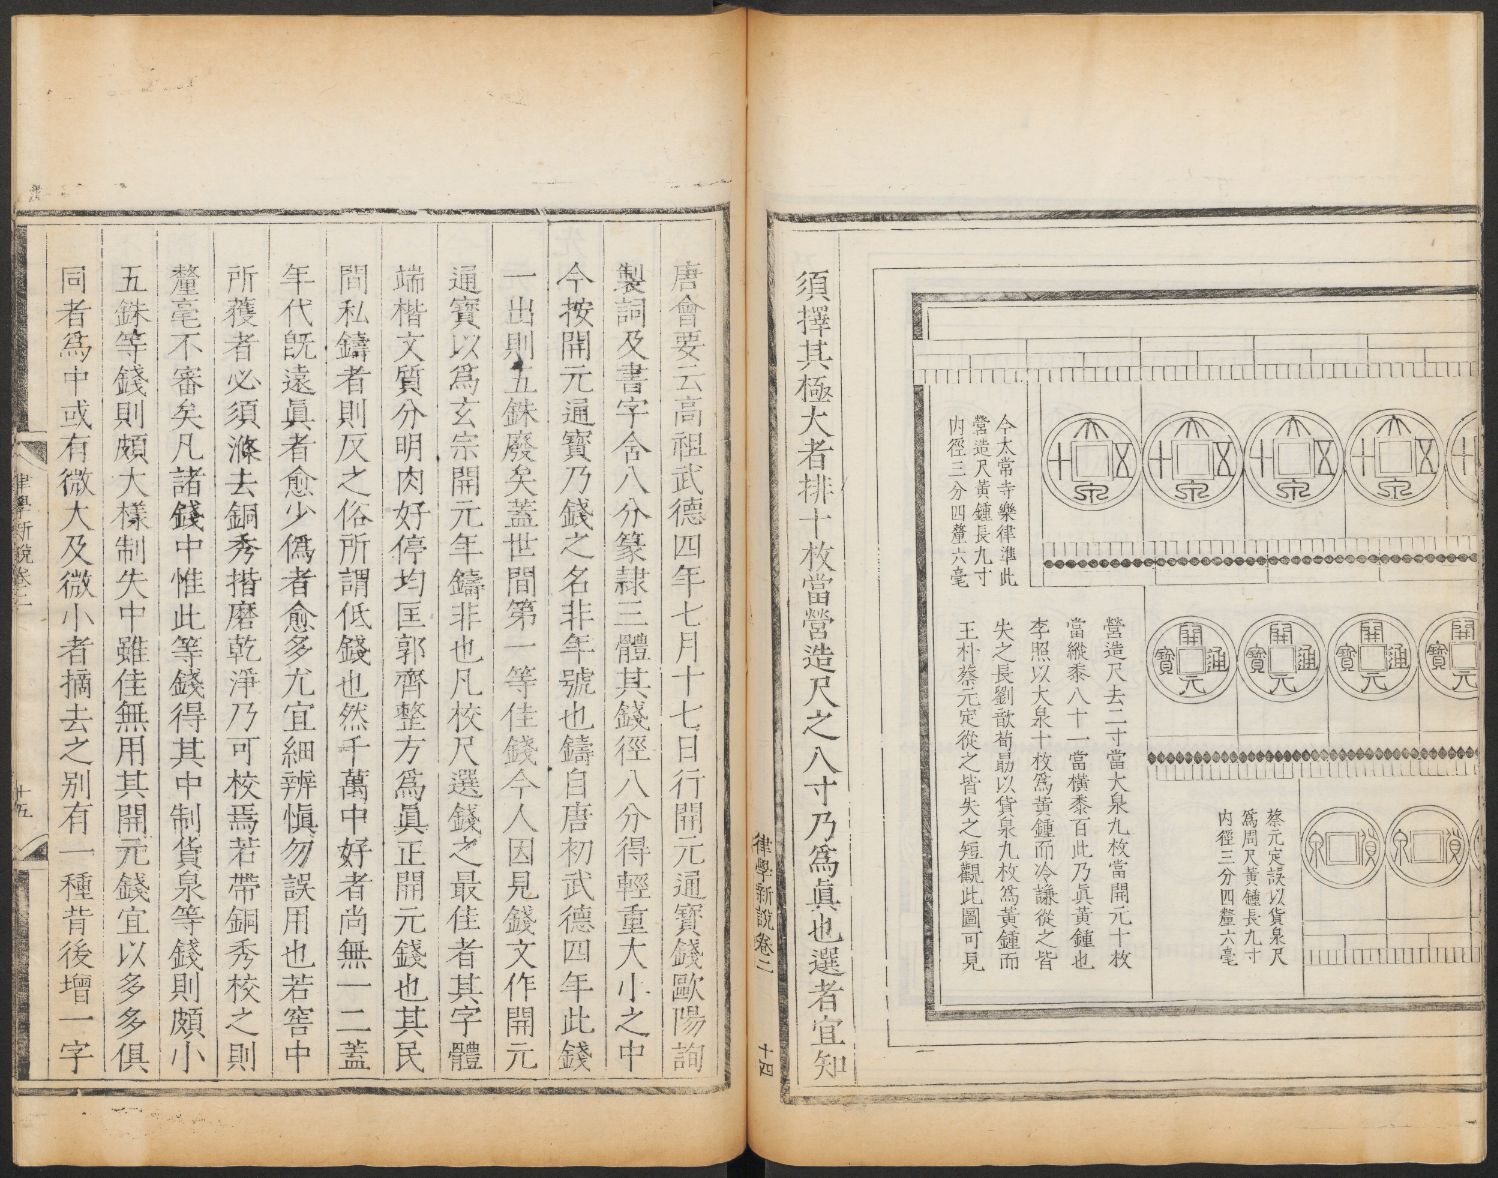 大泉五十
大泉五十
大泉五十
大泉五十
今太常寺樂律準此
營造尺黃鍾長九寸
內徑三分四釐六毫
開元通寶
開元通寶
開元通寶
開元通寶
營造尺去二寸當大泉九枚當開元十枚
當縱黍八十一當橫黍百此乃眞黃鍾也
李照以大泉十枚爲黃鍾而冷謙從之皆
失之長劉歆荀勗以貨泉九枚爲黃鍾而
王朴蔡元定從之皆失之短觀此圖可見
貨泉
貨泉
蔡元定誤以貨泉尺
爲周尺黃鍾長九寸
內徑三分四釐六毫
須擇其極大者排十枚當營造尺之八寸乃爲眞也選者宜知
律學新說卷二
十四
唐會要云高祖武德四年七月十七日行開元通寶錢歐陽詢
製詞及書字含八分篆隷三體其錢徑八分得輕重大小之中
今按開元通寶乃錢之名非年號也鑄自唐初武德四年此錢
一出則五銖廢矣蓋世間第一等佳錢今人因見錢文作開元
通寶以爲玄宗開元年鑄非也凡校尺選錢之最佳者其字體
端楷文質分明肉好停均匡郭齊整方爲眞正開元錢也其民
間私鑄者則反之俗所謂低錢也然千萬中好者尚無一二蓋
年代旣遠眞者愈少僞者愈多尤宜細辨愼勿誤用也若窖中
所獲者必須滌去銅秀揩磨乾淨乃可校焉若帶銅秀校之則
釐毫不審矣凡諸錢中惟此等錢得其中制貨泉等錢則頗小
五銖等錢則頗大樣制失中雖佳無用其開元錢宜以多多俱
同者爲中或有微大及微小者摘去之别有一種背後增一字
律學新說卷二
十五